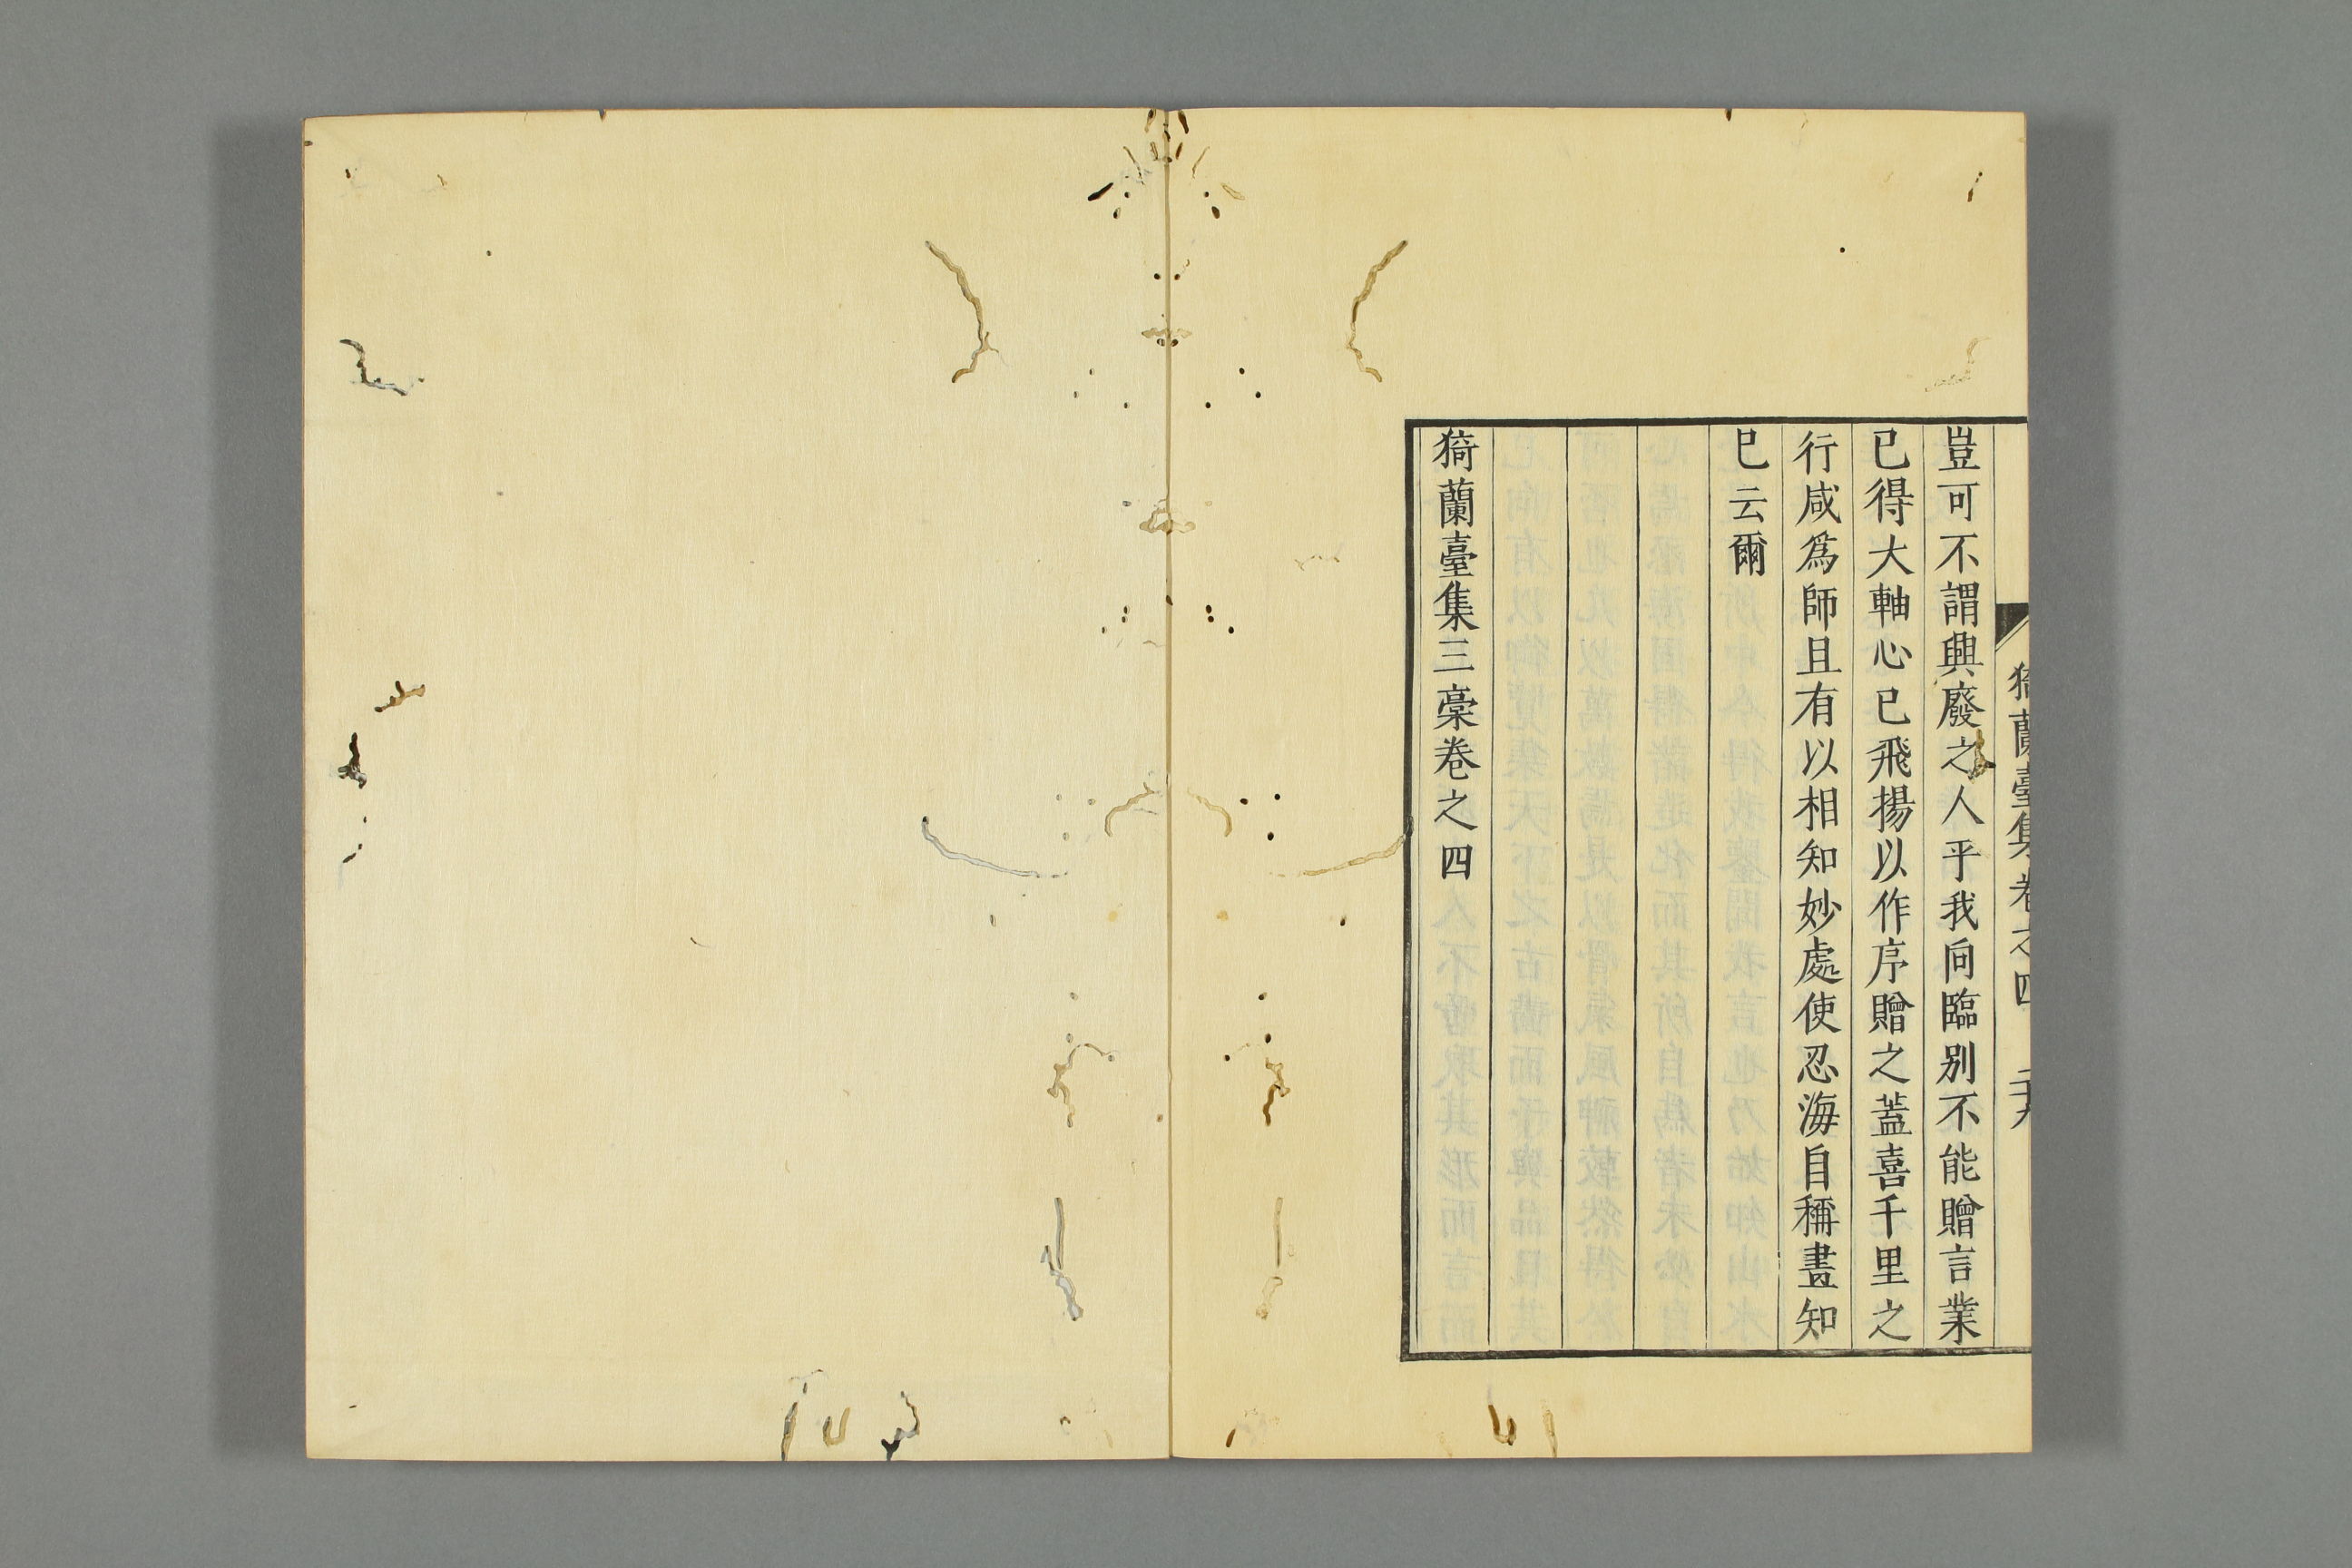 猗蘭臺集卷之四 二十九
豈可不謂興廢之人乎我向臨别不能贈言業
已得大軸心已飛揚以作序贈之蓋喜千里之
行咸爲師且有以相知妙處使忍海自稱畫知
已云爾
猗蘭臺集三稾卷之四